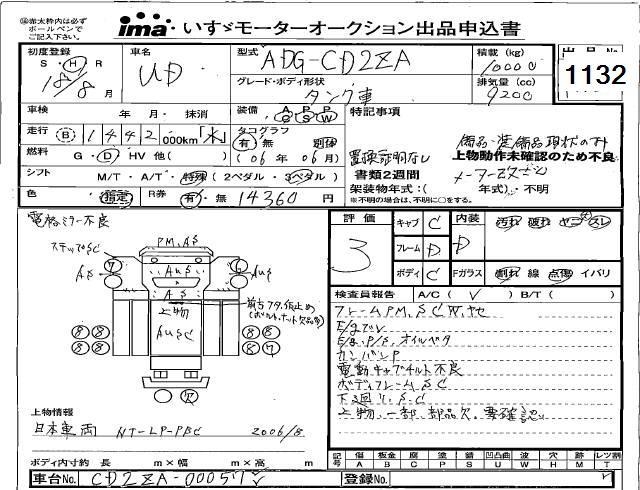 ㊟赤太枠内は必ず
ボールペンで
ご記入下さい。
ima いすゞモーターオークション出品申込書
初度登録 車名 型式 ADG-CD2ZA 積載 (kg) 出品No.
S・H・R UD 10000 1132
18/8月 グレード・ボディ形状 タンク車 排気量 (cc) 9200
車検 年 月・抹消 装備 A P P S W 特記事項
走行 B 1442,000km「水」 タコグラフ 有・無 別体 備品・装備品現状のみ
(06年06月) 置換証明なし 上物動作未確認のため不良
燃料 G・D・HV 他( ) 書類2週間 メーター改ざん
シフト M/T・A/T・特殊(2ペダル・3ペダル) 架装物年式:( 年式)・不明
色 指定 R券 有・無 14360円 ※不明の場合は、不明に○をする。
電格ミラー不良
ステップSC PM,AS
AS AuS AuS
AS
上物
AuSC
8 8 8 8
8 8 8 7
欠
上物情報
日本車両 NT-LP-PBC 2006/8
ボディ内寸約 長 m×幅 m×高 m
車台No. CD2ZA-00057
評価 3
キャブ C 内装 D 汚れ 破れ ヤニ スレ
フレーム D
ボディ C Fガラス 割れ 線 点傷 イバリ
検査員報告 A/C ( ✓ ) B/T ( )
フレームPM,SCW,ヤセ
E/gカブリ
E/g,P/S,オイルベタ
カンバンP
電動キャブチルト不良
ボディフレーム,SC
下廻り,SC
上物,一部,部品欠,要確認
記号 傷 板金 腐 塗 錆 凹凸曲 波 穴 跡 レツ割
A B C P S U W H M T
登録No.